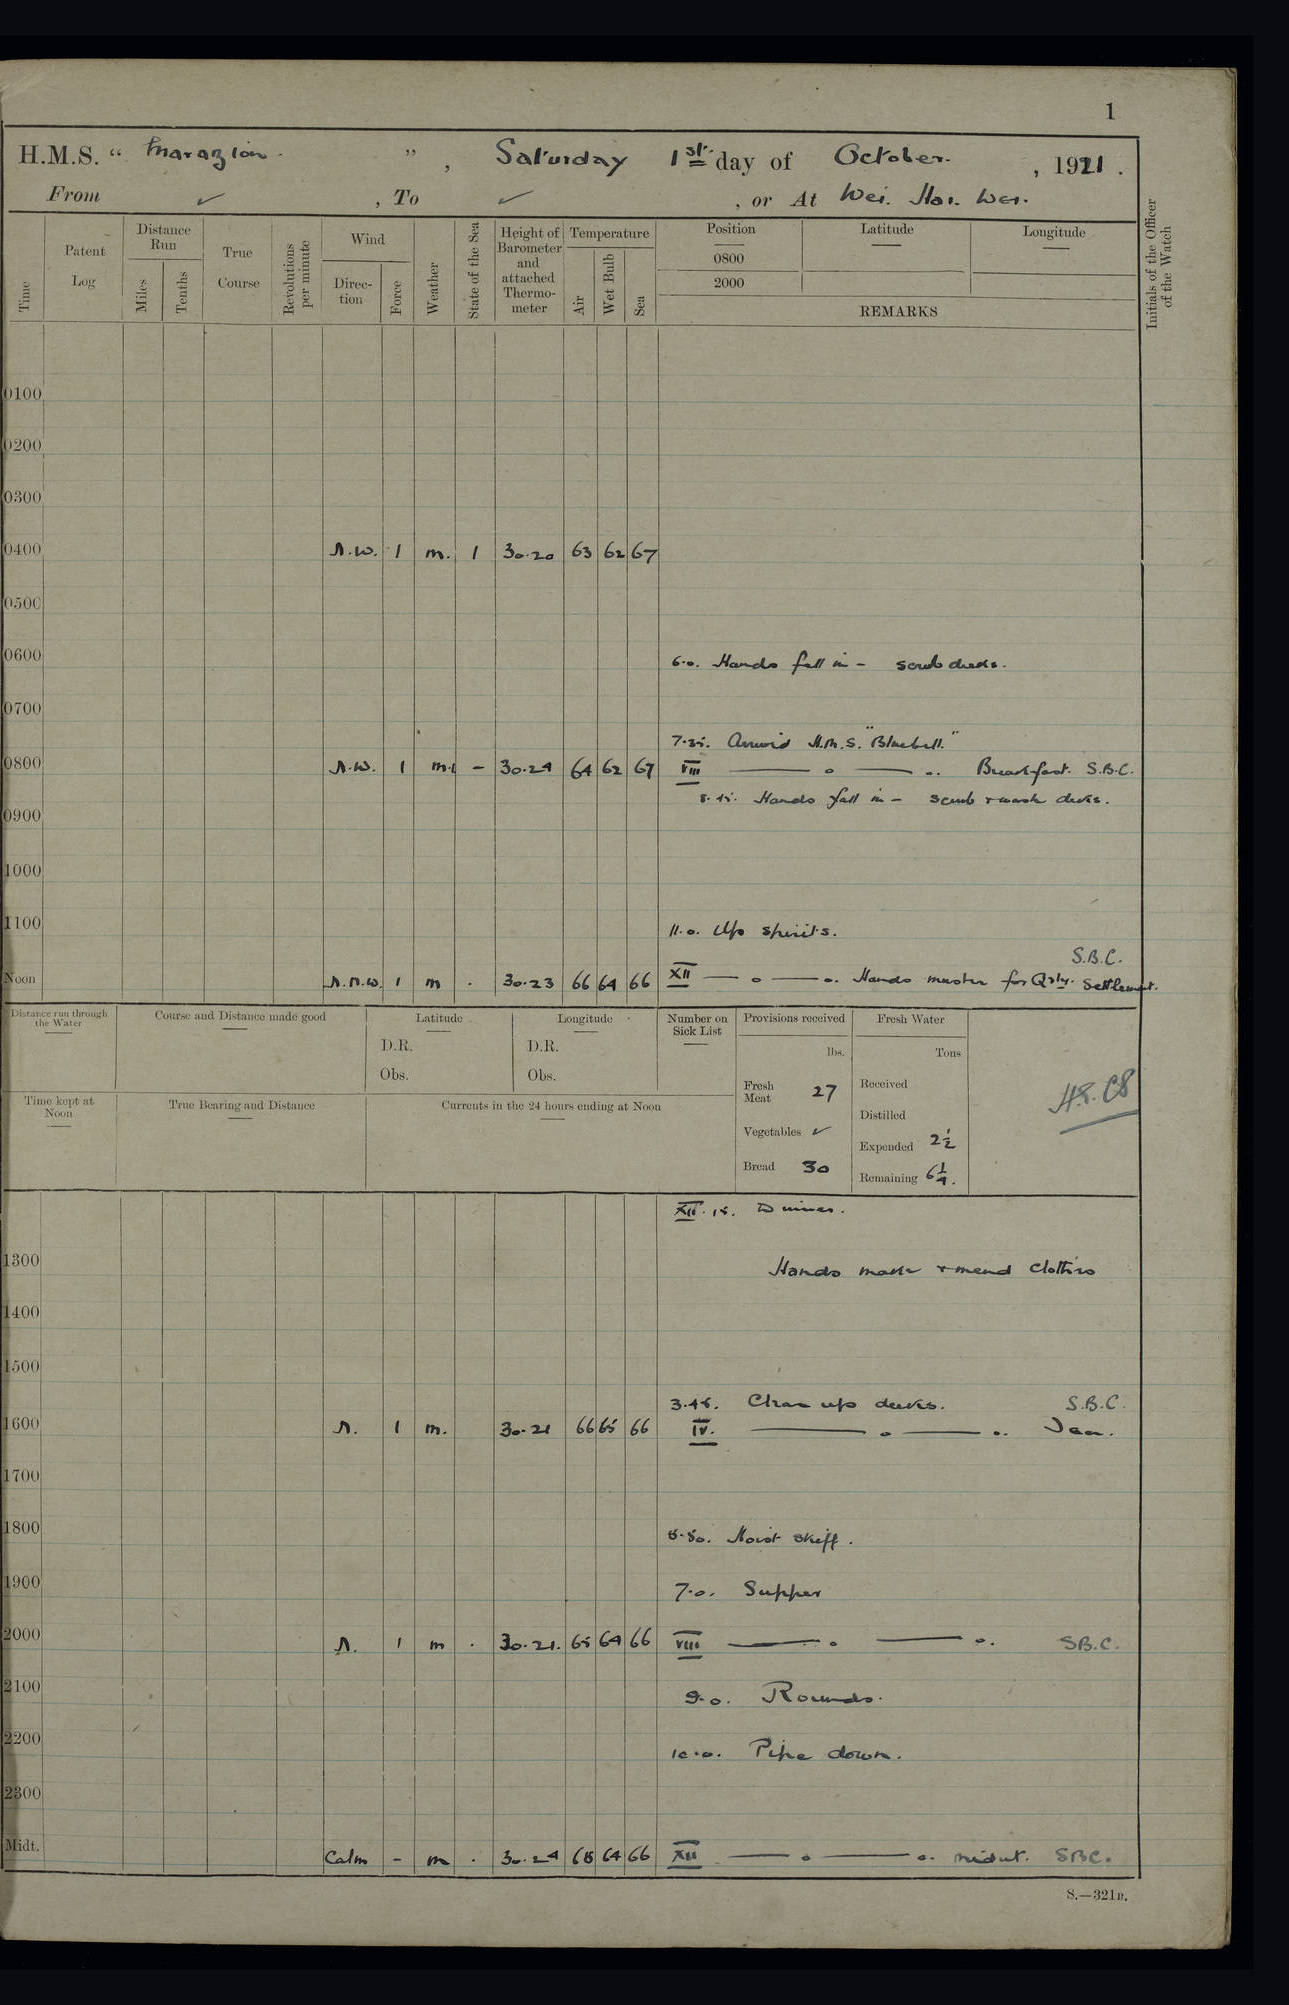 1
H.M.S. “ Marazion ” , Saturday 1st day of October , 1921 .
From ✓ , To ✓ , or At Wei. Hai. Wei.
Time Patent Log Distance Run Miles Tenths True Course Revolutions per minute Wind Direction Force Weather State of the Sea Height of Barometer and attached Thermometer Temperature Air Wet Bulb Sea Position Latitude Longitude Initials of the Officer of the Watch
0800
2000
REMARKS
0100
0200
0300
0400 N.W. 1 m. 1 30.20 63 62 67
0500
0600 6.0. Hands fall in – scrub decks.
0700
7.35. Arrived H.M.S. "Bluebell."
0800 N.W. 1 m. – 30.24 64 62 67 VIII —— o —— o. Breakfast. S.B.C.
8.45. Hands fall in – scrub & wash decks.
0900
1000
1100 11.0. Up spirits.
S.B.C.
Noon N.N.W. 1 m . 30.23 66 64 66 XII —— o —— o. Hands muster for Qrly. Settlement.
Distance run through the Water Course and Distance made good Latitude Longitude Number on Sick List Provisions received Fresh Water
D.R. D.R. lbs. Tons
Obs. Obs. Fresh Meat 27 Received
Time kept at Noon True Bearing and Distance Currents in the 24 hours ending at Noon Distilled
Vegetables ✓ Expended 2½
Bread 30 Remaining 6¼.
XII.15. Dinner.
1300 Hands make & mend clothes
1400
1500
3.45. Clear up decks. S.B.C.
1600 N. 1 m. 30.21 66 65 66 IV. —— o —— o. Tea.
1700
1800 5.50. Hoist skiff.
1900 7.0. Supper
2000 N. 1 m . 30.21. 65 64 66 VIII —— o —— o. S.B.C.
2100 9.0. Rounds.
2200 10.0. Pipe down.
2300
Midt. Calm – m . 30.24 65 64 66 XII —— o —— o. midnt. SBC.
S.—321B.